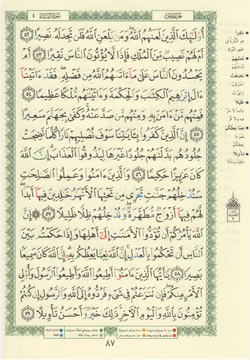 أُو۟لَٰٓئِكَ ٱلَّذِينَ لَعَنَهُمُ ٱللَّهُ وَمَن يَلْعَنِ ٱللَّهُ فَلَن تَجِدَ لَهُۥ نَصِيرًا ٥٢
أَمْ لَهُمْ نَصِيبٌ مِّنَ ٱلْمُلْكِ فَإِذًا لَّا يُؤْتُونَ ٱلنَّاسَ نَقِيرًا ٥٣
أَمْ يَحْسُدُونَ ٱلنَّاسَ عَلَىٰ مَآ ءَاتَىٰهُمُ ٱللَّهُ مِن فَضْلِهِۦ فَقَدْ ءَاتَيْنَآ
ءَالَ إِبْرَٰهِيمَ ٱلْكِتَٰبَ وَٱلْحِكْمَةَ وَءَاتَيْنَٰهُم مُّلْكًا عَظِيمًا ٥٤
فَمِنْهُم مَّنْ ءَامَنَ بِهِۦ وَمِنْهُم مَّن صَدَّ عَنْهُ وَكَفَىٰ بِجَهَنَّمَ سَعِيرًا
٥٥ إِنَّ ٱلَّذِينَ كَفَرُوا۟ بِـَٔايَٰتِنَا سَوْفَ نُصْلِيهِمْ نَارًا كُلَّمَا نَضِجَتْ
جُلُودُهُم بَدَّلْنَٰهُمْ جُلُودًا غَيْرَهَا لِيَذُوقُوا۟ ٱلْعَذَابَ إِنَّ ٱللَّهَ
كَانَ عَزِيزًا حَكِيمًا ٥٦ وَٱلَّذِينَ ءَامَنُوا۟ وَعَمِلُوا۟ ٱلصَّٰلِحَٰتِ
سَنُدْخِلُهُمْ جَنَّٰتٍ تَجْرِى مِن تَحْتِهَا ٱلْأَنْهَٰرُ خَٰلِدِينَ فِيهَآ أَبَدًا
لَّهُمْ فِيهَآ أَزْوَٰجٌ مُّطَهَّرَةٌ وَنُدْخِلُهُمْ ظِلًّا ظَلِيلًا ٥٧ إِنَّ
ٱللَّهَ يَأْمُرُكُمْ أَن تُؤَدُّوا۟ ٱلْأَمَٰنَٰتِ إِلَىٰٓ أَهْلِهَا وَإِذَا حَكَمْتُم بَيْنَ
ٱلنَّاسِ أَن تَحْكُمُوا۟ بِٱلْعَدْلِ إِنَّ ٱللَّهَ نِعِمَّا يَعِظُكُم بِهِۦٓ إِنَّ ٱللَّهَ كَانَ سَمِيعًۢا
بَصِيرًا ٥٨ يَٰٓأَيُّهَا ٱلَّذِينَ ءَامَنُوٓا۟ أَطِيعُوا۟ ٱللَّهَ وَأَطِيعُوا۟ ٱلرَّسُولَ وَأُو۟لِى
ٱلْأَمْرِ مِنكُمْ فَإِن تَنَٰزَعْتُمْ فِى شَىْءٍ فَرُدُّوهُ إِلَى ٱللَّهِ وَٱلرَّسُولِ إِن كُنتُمْ
تُؤْمِنُونَ بِٱللَّهِ وَٱلْيَوْمِ ٱلْءَاخِرِ ذَٰلِكَ خَيْرٌ وَأَحْسَنُ تَأْوِيلًا ٥٩
٨٧